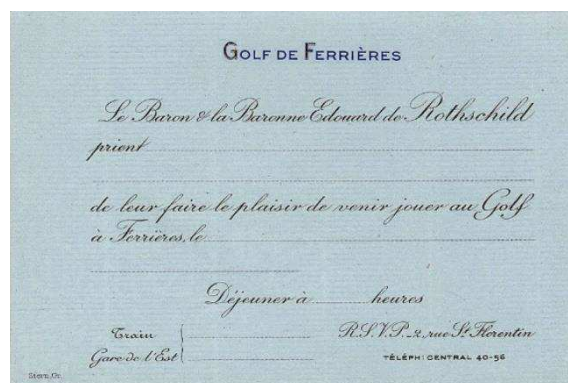 GOLF DE FERRIÈRES
Le Baron & la Baronne Edouard de Rothschild
prient
de leur faire le plaisir de venir jouer au Golf
à Ferrières, le
Déjeuner à heures
Train
Gare de l'Est
R.S.V.P. _ 2, rue St Florentin
TÉLÉPH: CENTRAL 40-56
Stern, Gr.